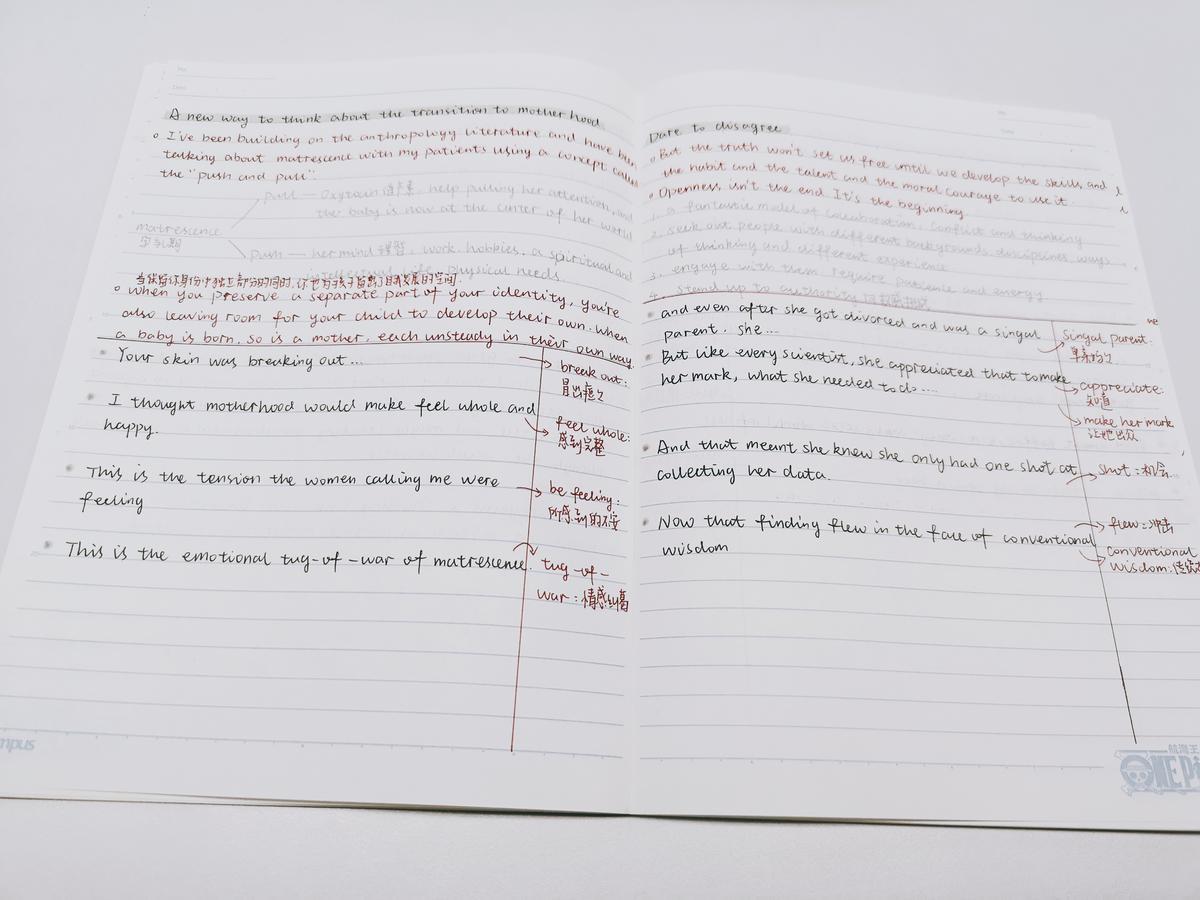 A new way to think about the transition to mother hood
I've been building on the anthropology literature and have been
talking about matrescence with my patients using a concept called
the "push and pull".
pull — Oxytain 催产素, help pulling her attention, and
the baby is now at the center of her world
matrescence
孕乳期
Push — her mind 理智, work, hobbies, a spiritual and
intellectual life, physical needs.
当你保留你身份中独立部分的同时,你也为孩子留出了自我发展的空间.
when you preserve a separate part of your identity, you're
also leaving room for your child to develop their own. when
a baby is born, so is a mother, each unsteady in their own way.
Your skin was breaking out...
break out:
冒出痘痘
I thought motherhood would make feel whole and
happy.
feel whole:
感到完整
This is the tension the women calling me were
feeling
be feeling:
所感到的不安
This is the emotional tug-of-war of matrescence.
tug-of-
war:情感纠葛
Dare to disagree
But the truth won't set us free until we develop the skills and
the habit and the talent and the moral courage to use it.
Openness isn't the end. It's the beginning.
1. a fantastic model of collaboration, conflict and thinking
2. seek out people with different backgrounds, disciplines, ways
of thinking and different experience
3. engage with them require patience and energy
4. stand up to authority
and even after she got divorced and was a singal
parent. she...
singal parent:
But like every scientist, she appreciated that to make
her mark, what she needed to do....
appreciate:
知道
make her mark
让她出众
And that meant she knew she only had one shot at
collecting her data.
shot:机会
Now that finding flew in the face of conventional
wisdom
flew:冲击
conventional
wisdom:传统
mpus
航海王
ONE Pi